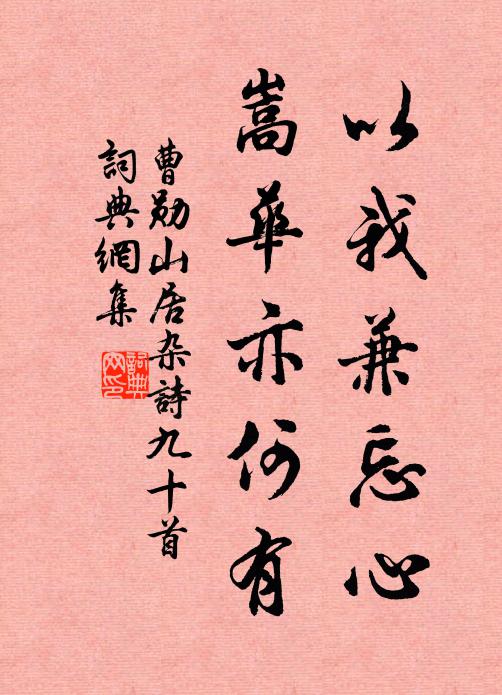 以我兼忘心
嵩華亦何有
曹勛山居杂詩九十首
詞典網集
詞典網印